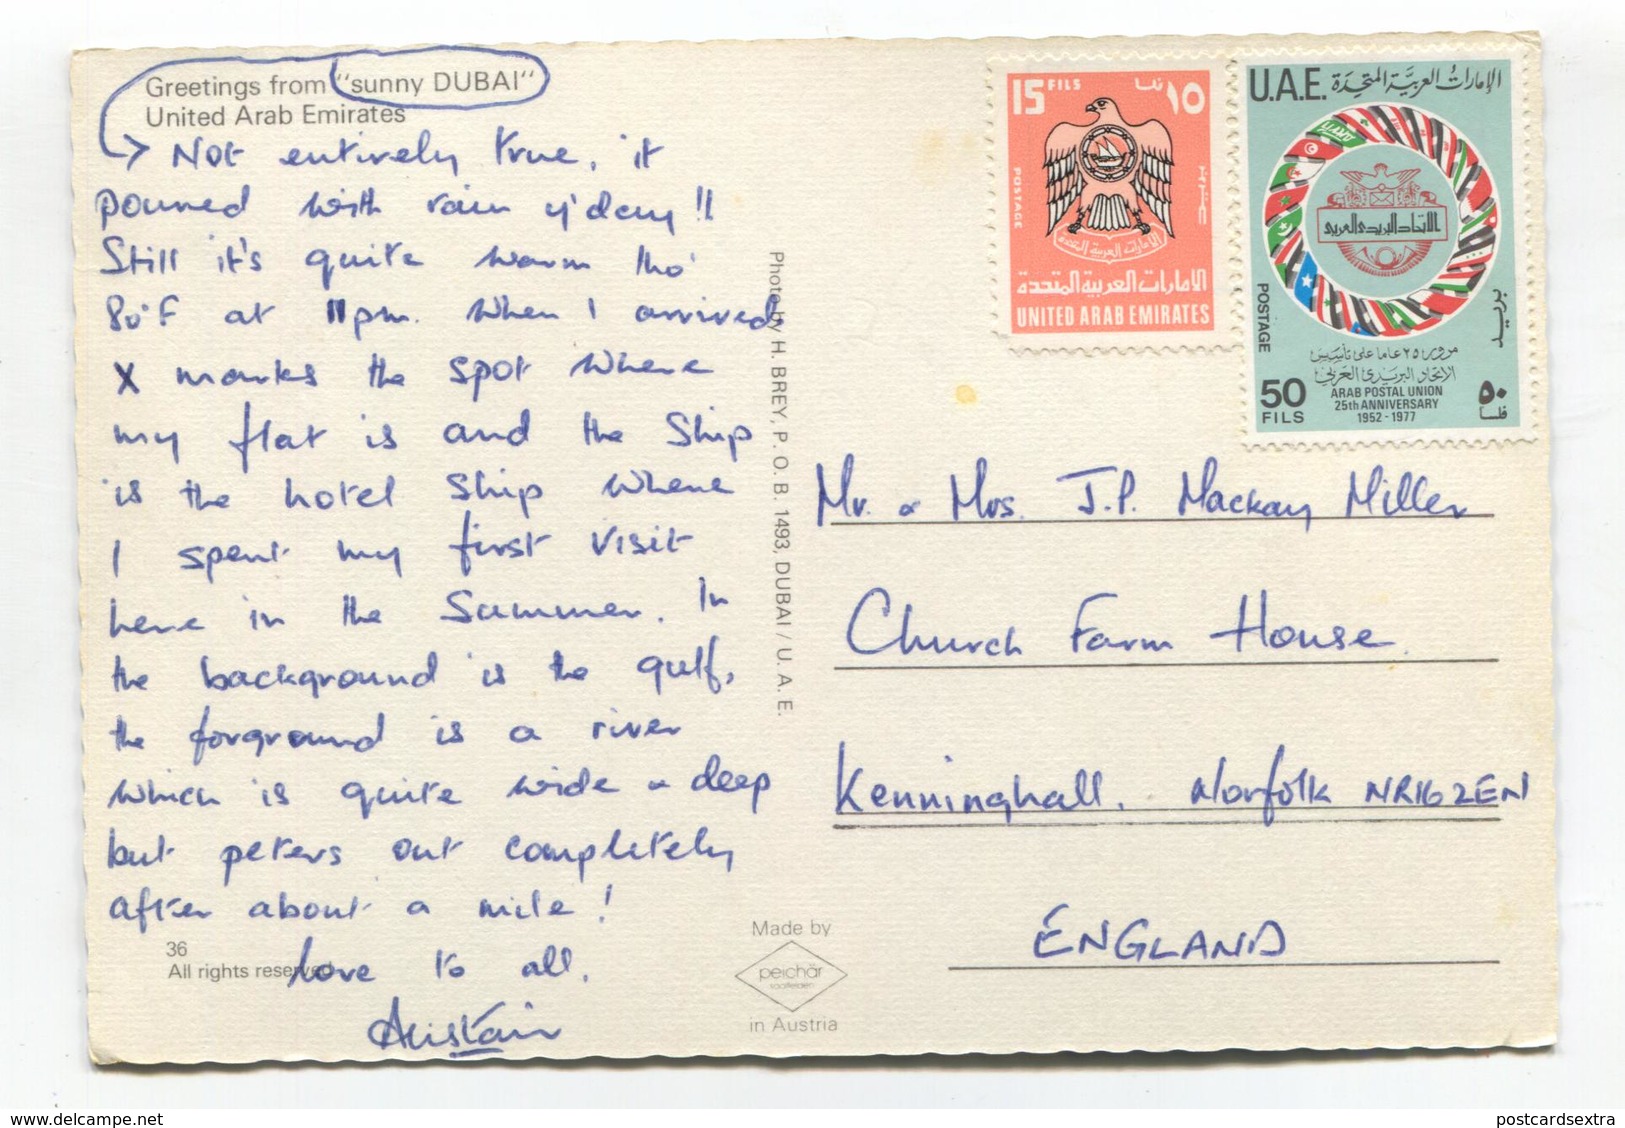 Greetings from "sunny DUBAI"
United Arab Emirates
Not entirely true, it
poured with rain y'day!!
Still it's quite warm tho'
80°F at 11pm. when I arrived
X marks the spot where
my flat is and the Ship
is the hotel ship where
I spent my first visit
here in the Summer. In
the background is the gulf,
the forground is a river
which is quite wide & deep
but peters out completely
after about a mile!
love to all.
Alistair
36
All rights reserved
Photo by H. BREY, P. O. B. 1493, DUBAI / U. A. E.
Made by
peichär
saalfelden
in Austria
15 FILS
١٥ فلسا
POSTAGE
بريد
الامارات العربية المتحدة
الامارات العربية المتحدة
UNITED ARAB EMIRATES
U.A.E. الإمارات العربية المتحدة
الاتحاد البريدي العربي
POSTAGE
بريد
مرور ٢٥ عاما على تأسيس
الإتحاد البريدي العربي
ARAB POSTAL UNION
25th ANNIVERSARY
1952 - 1977
50 FILS
٥٠ فلسا
Mr. & Mrs. J.P. Mackay Miller
Church Farm House.
Kenninghall. Norfolk NR16 2EN
ENGLAND
delcampe.net
postcardsextra